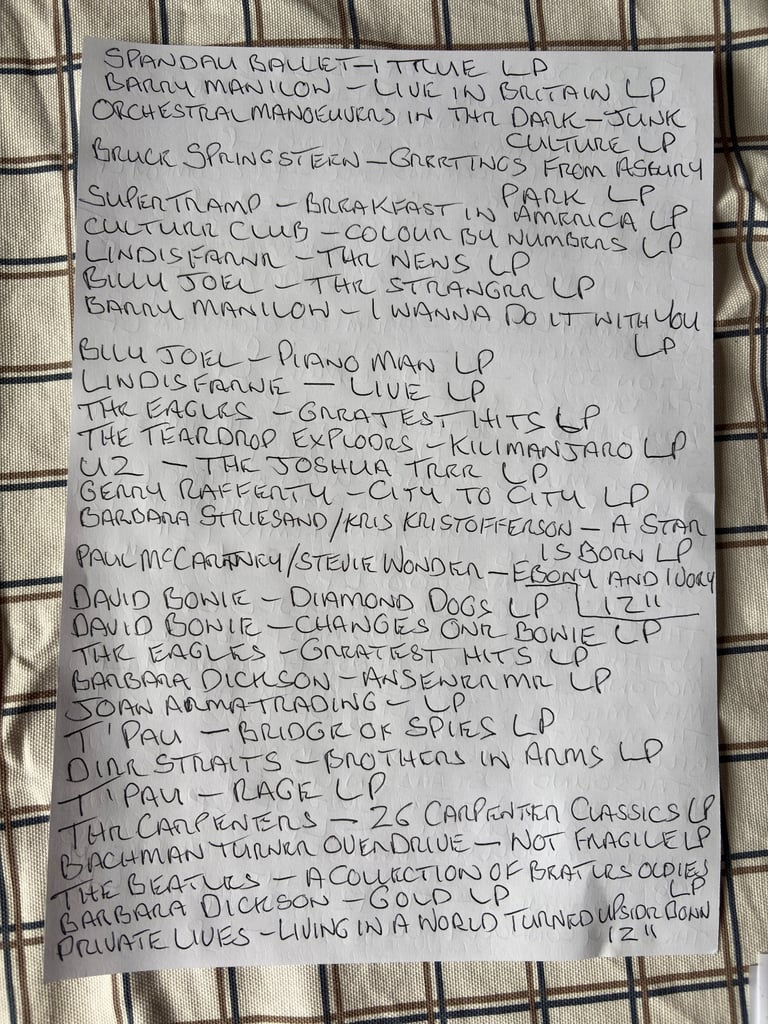 SPANDAU BALLET - TRUE LP
BARRY MANILOW - LIVE IN BRITAIN LP
ORCHESTRAL MANOEUVERS IN THE DARK - JUNK
CULTURE LP
BRUCE SPRINGSTEEN - GREETINGS FROM ASBURY
PARK LP
SUPERTRAMP - BREAKFAST IN AMERICA LP
CULTURE CLUB - COLOUR BY NUMBERS LP
LINDISFARNE - THE NEWS LP
BILLY JOEL - THE STRANGER LP
BARRY MANILOW - I WANNA DO IT WITH YOU
LP
BILLY JOEL - PIANO MAN LP
LINDISFARNE - LIVE LP
THE EAGLES - GREATEST HITS LP
THE TEARDROP EXPLODRS - KILIMANJARO LP
U2 - THE JOSHUA TREE LP
GERRY RAFFERTY - CITY TO CITY LP
BARBARA STRIESAND/KRIS KRISTOFFERSON - A STAR
IS BORN LP
PAUL MCCARTNEY/STEVIE WONDER - EBONY AND IVORY
12"
DAVID BOWIE - DIAMOND DOGS LP
DAVID BOWIE - CHANGES ONE BOWIE LP
THE EAGLES - GREATEST HITS LP
BARBARA DICKSON - ANSEWER ME LP
JOAN ARMATRADING - LP
T'PAU - BRIDGE OF SPIES LP
DIRE STRAITS - BROTHERS IN ARMS LP
T'PAU - RAGE LP
THE CARPENTERS - 26 CARPENTER CLASSICS LP
BACHMAN TURNER OVERDRIVE - NOT FRAGILE LP
THE BEATLES - A COLLECTION OF BEATLES OLDIES
LP
BARBARA DICKSON - GOLD LP
PRIVATE LIVES - LIVING IN A WORLD TURNED UPSIDE DOWN
12"